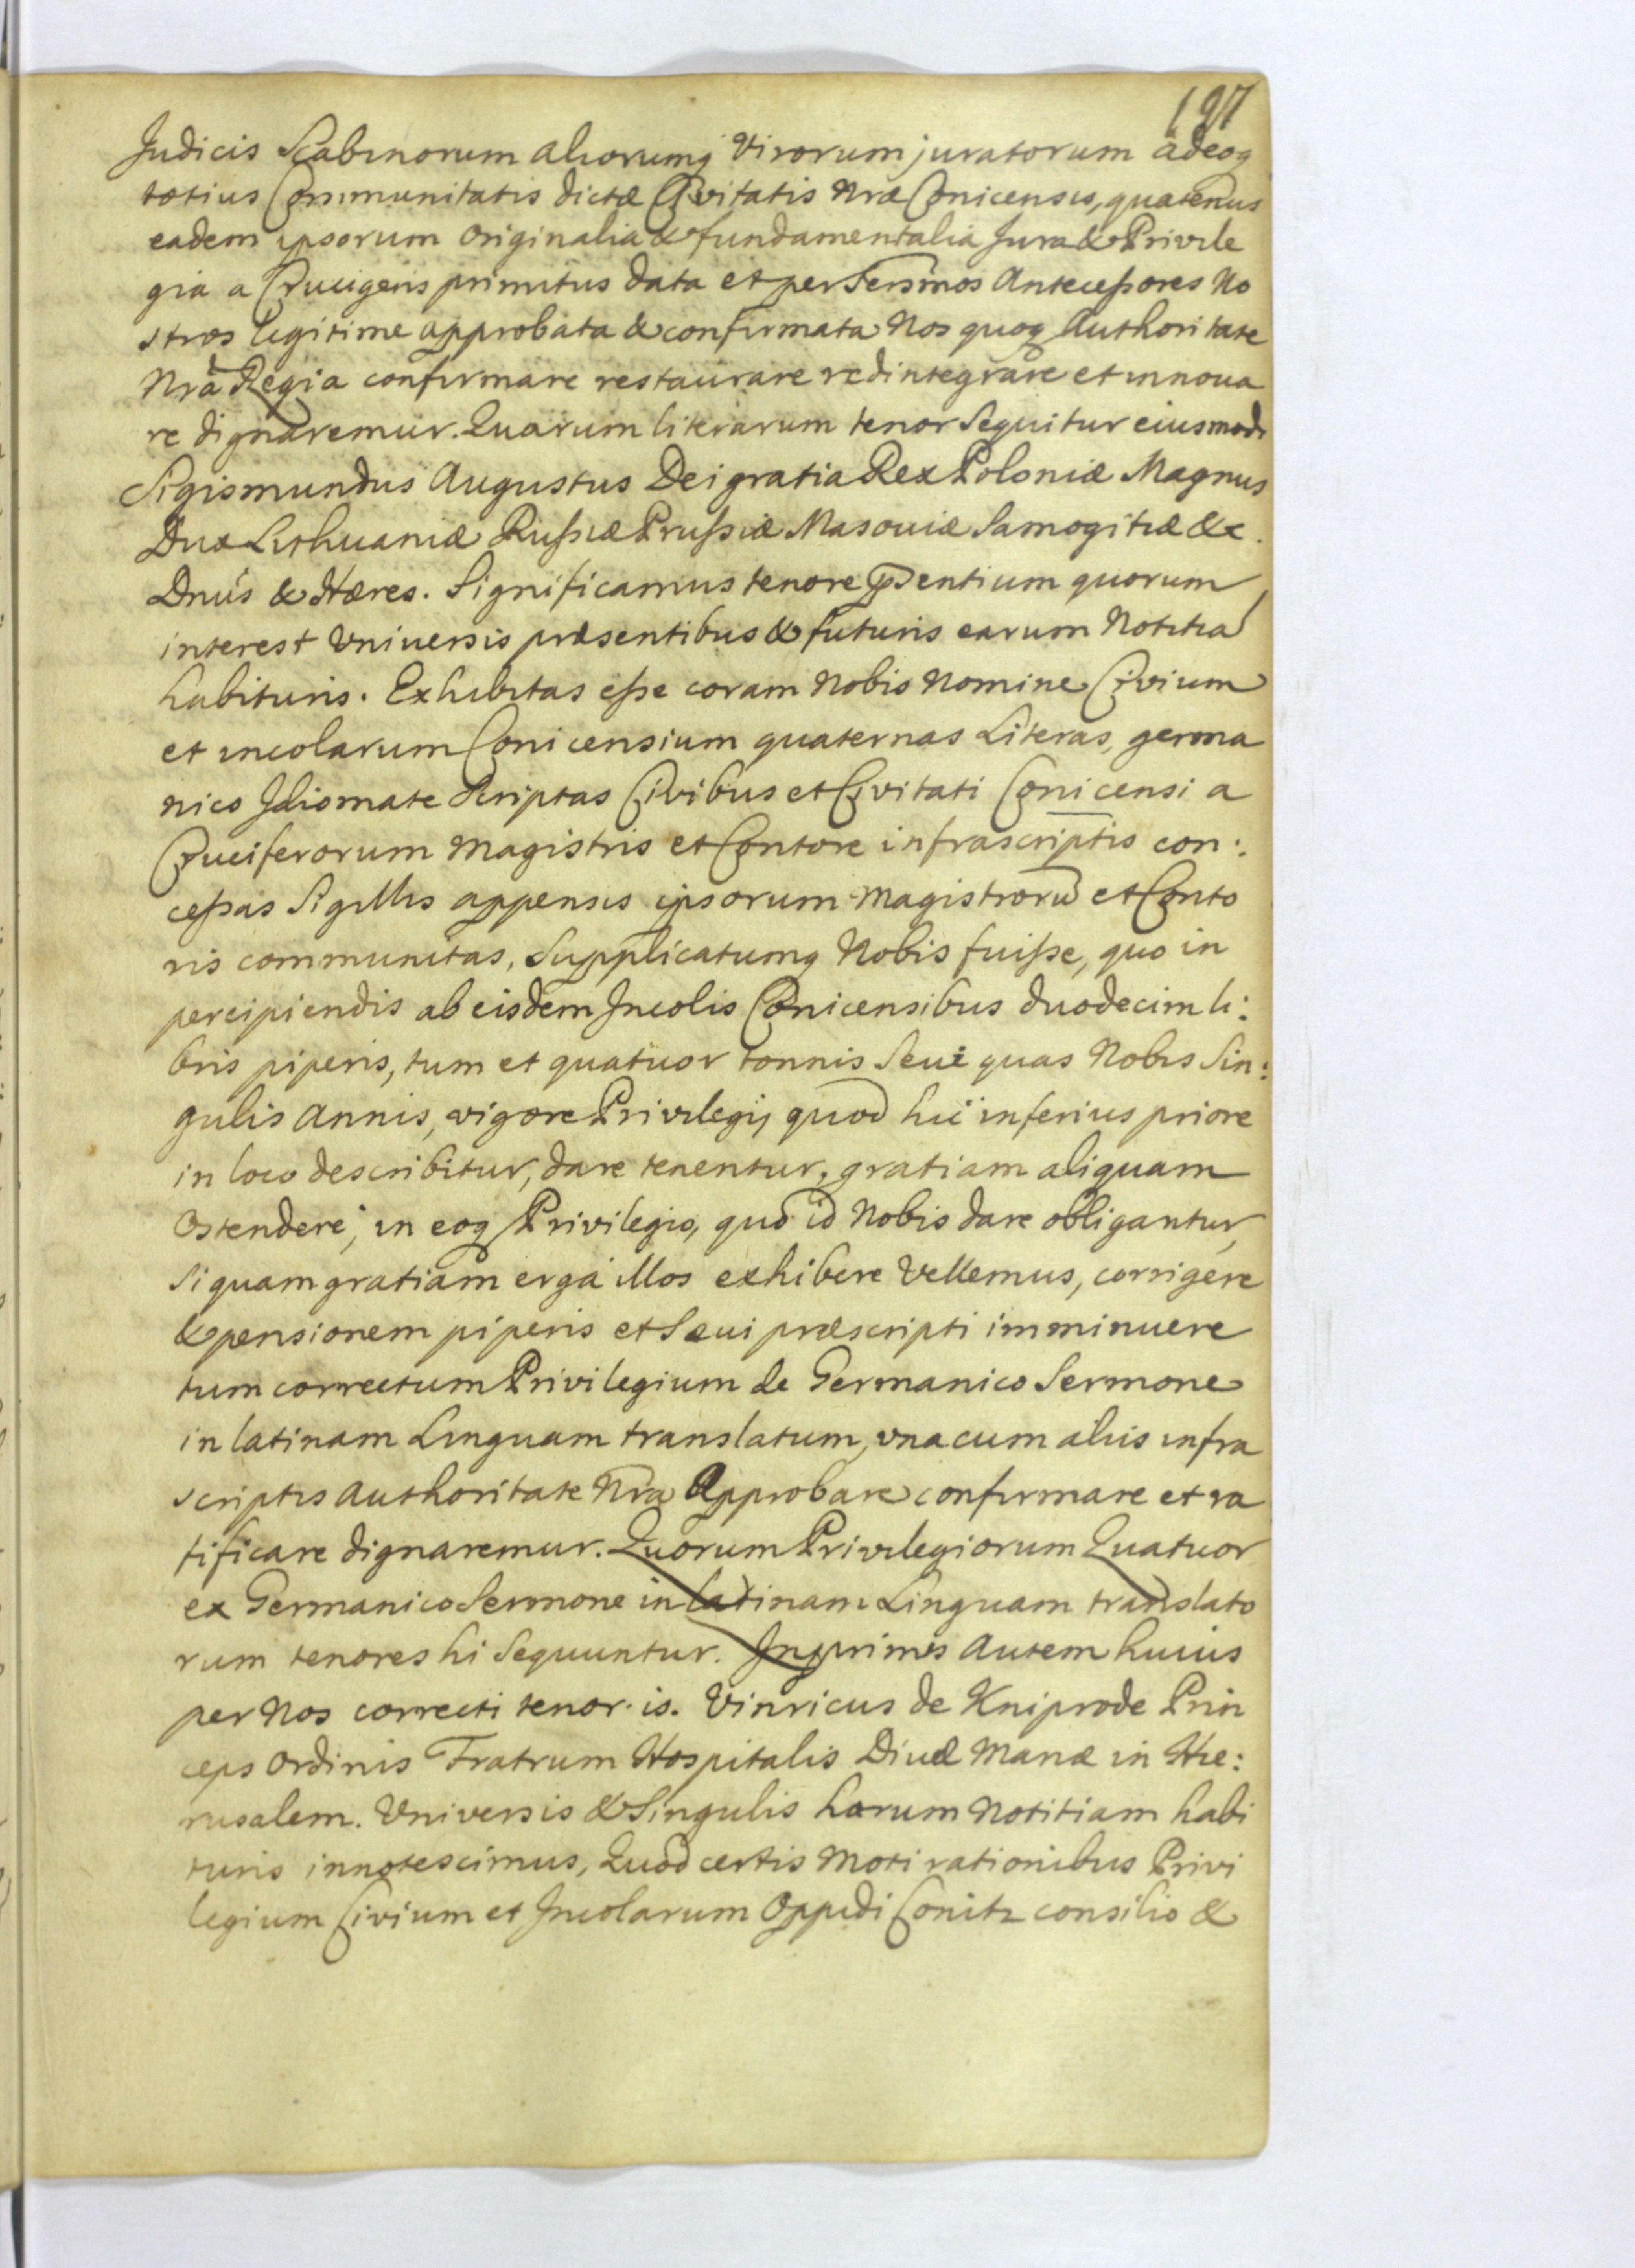 197
Judicis Scabinorum aliorumq Virorum juratorum adeoq
totius Communitatis dictæ Civitatis Nræ Conicensis, quatenus
eadem ipsorum Originalia & fundamentalia Jura & Privile
gia a Crucigeris primitus data et per Sersmos Antecessores No
stros legitime approbata & confirmata Nos quoq Authoritate
Nrâ Regia confirmare restaurare redintegrare et innoua
re dignaremur. Quarum literarum tenor sequitur eiusmodi
Sigismundus Augustus Dei gratia Rex Poloniæ Magnus
Dux Lithuaniæ Russiæ Prussiæ Masouiæ Samogitiæ &c.
Dnus & Hæres. Significamus tenore pñsentium quorum
interest Vniuersis præsentibus & futuris earum Notitiã
habituris. Exhibitas esse coram Nobis Nomine Civium
et incolarum Conicensium quaternas Literas, germa
nico Idiomate Scriptas Civibus et Civitati Conicensi a
Cruciferorum Magistris et Contore infrascriptis con:
cessas Sigillis appensis ipsorum Magistrorũ et Conto
ris communitas, Supplicatumq Nobis fuisse, quo in
percipiendis ab eisdem Incolis Conicensibus duodecim li:
bris piperis, tum et quatuor tonnis Seui quas Nobis Sin:
gulis Annis, vigore Privilegij quod hic inferius priore
in loco describitur, dare tenentur, gratiam aliquam
Ostendere, in eoq Privilegio, quo id Nobis dare obligantur,
Si quam gratiam erga illos exhibere Vellemus, corrigere
& pensionem piperis et Seui præscripti imminuere
tum correctum Privilegium de Germanico Sermone
in latinam Linguam translatum, vna cum aliis infra
scriptis Authoritate Nra Approbare confirmare et ra
tificare dignaremur. Quorum Privilegiorum Quatuor
ex Germanico Sermone in latinam Linguam translato
rum tenores hi Sequuntur. Inprimis Autem huius
per Nos correcti tenor is. Vinricus de Kniprode Prin
ceps Ordinis Fratrum Hospitalis Diuæ Mariæ in Hie:
rusalem. Vniversis & Singulis harum Notitiam habi
turis innotescimus, Quod certis Moti rationibus Privi
legium Civium et Incolarum Oppidi Conitz consilio &